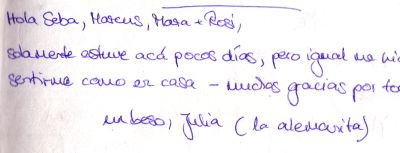 Hola Seba, Marcus, Mara + Rosi,
solamente estuve acá pocos días, pero igual me
sentirme como en casa – muchas gracias por
un beso, Julia (la alemanita)